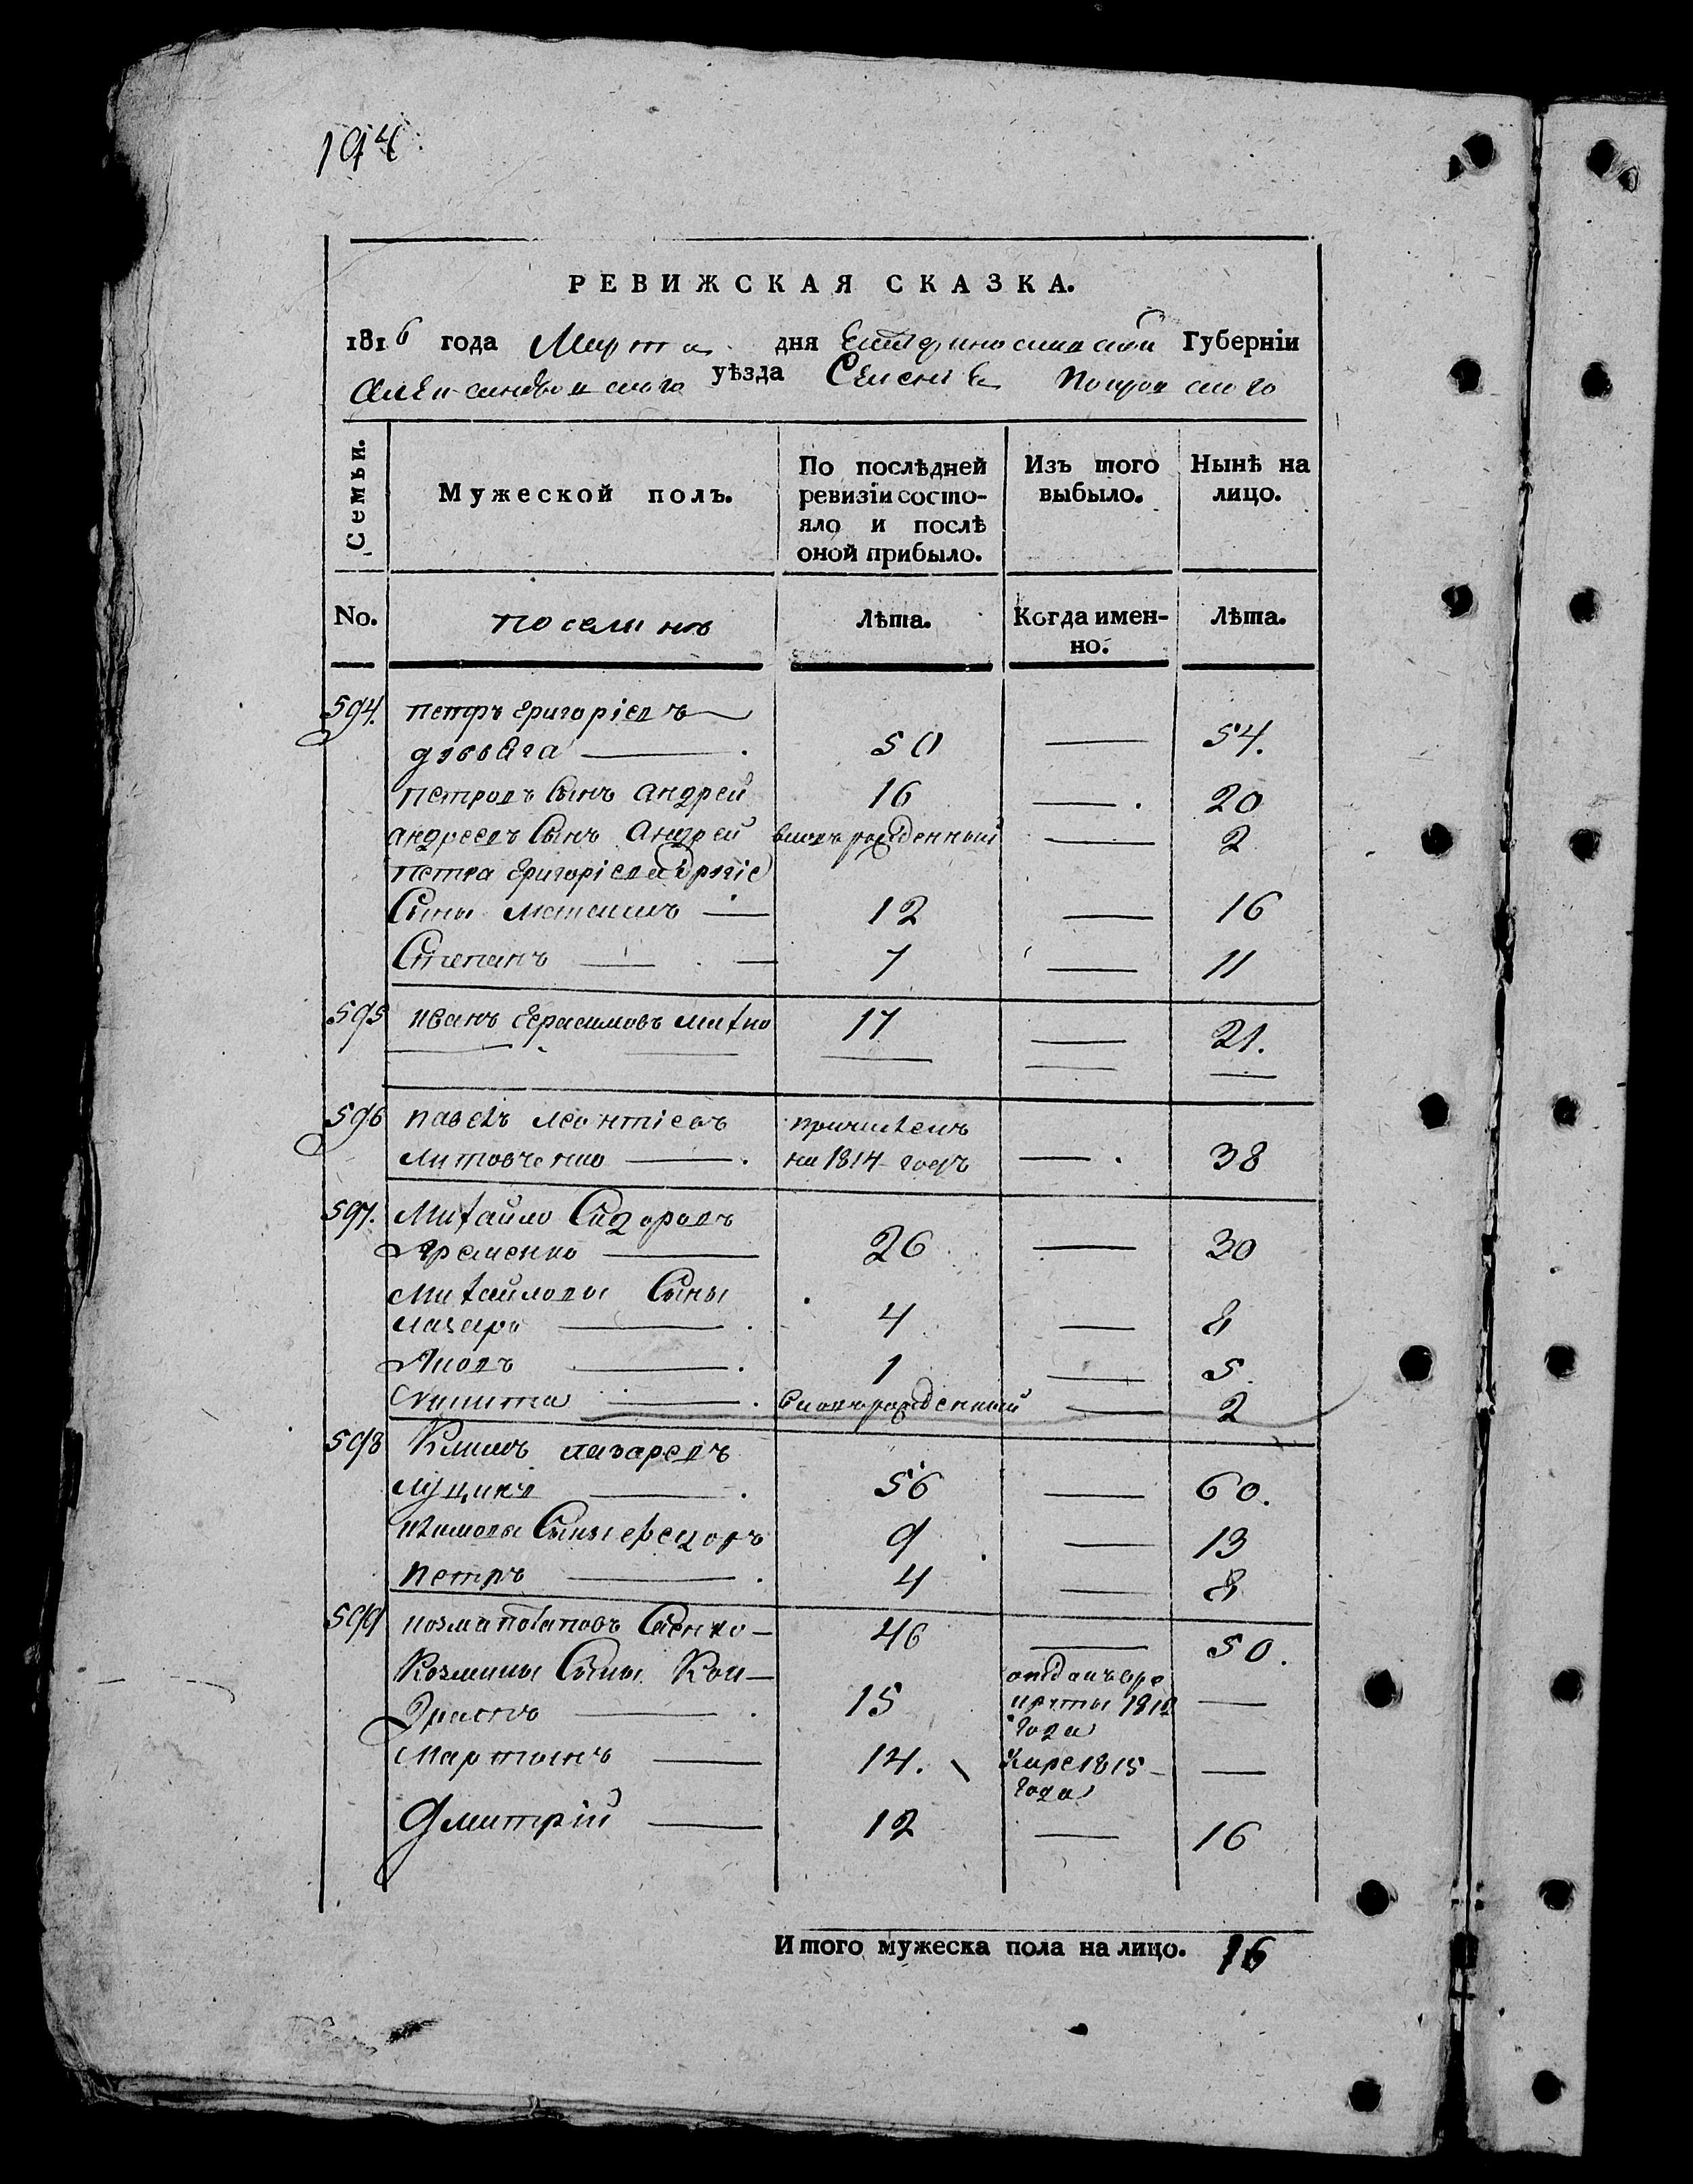 194
РЕВИЖСКАЯ СКАЗКА.
1816 года Марта дня Екатериnославской Губерніи
Александровского уѣзда Селенія Покровского
Семьи.
Мужеской полъ.
По послѣдней ревизіи состояло и послѣ оной прибыло.
Изъ того выбыло.
Нынѣ на лицо.
No.
поселянъ
Лѣта.
Когда именно.
Лѣта.
594. петръ григоріевъ
дзвыга — 50 — 54.
петровъ Сынъ андрей 16 — 20
андреевъ Сынъ андрей вновь рожденный — 2
петра григоріева другіе
Сыны максимъ — 12 — 16
Степанъ — 7 — 11
595 иванъ герасимовъ михно 17 — 21.
596 павелъ леонтіевъ причислен
литовченко — на 1814 годъ — 38
597. Михайло Сидоровъ
Яременко — 26 — 30
Михайловы Сыны
лазарь — 4 — 8
Яковъ — 1 — 5
Никита — вновь рожденный — 2
598 Климъ лазаревъ
луцикъ — 56 — 60.
климовы Сыны федоръ 9 — 13
петръ — 4 — 8
599 козма потаповъ Саенко — 46 — 50.
Козмины Сыны Кон-
дратъ — 15 отданъ вре круты 181 года —
Мартынъ — 14. 1815 года —
Дмитрій — 12 — 16
Итого мужеска пола на лицо. 16